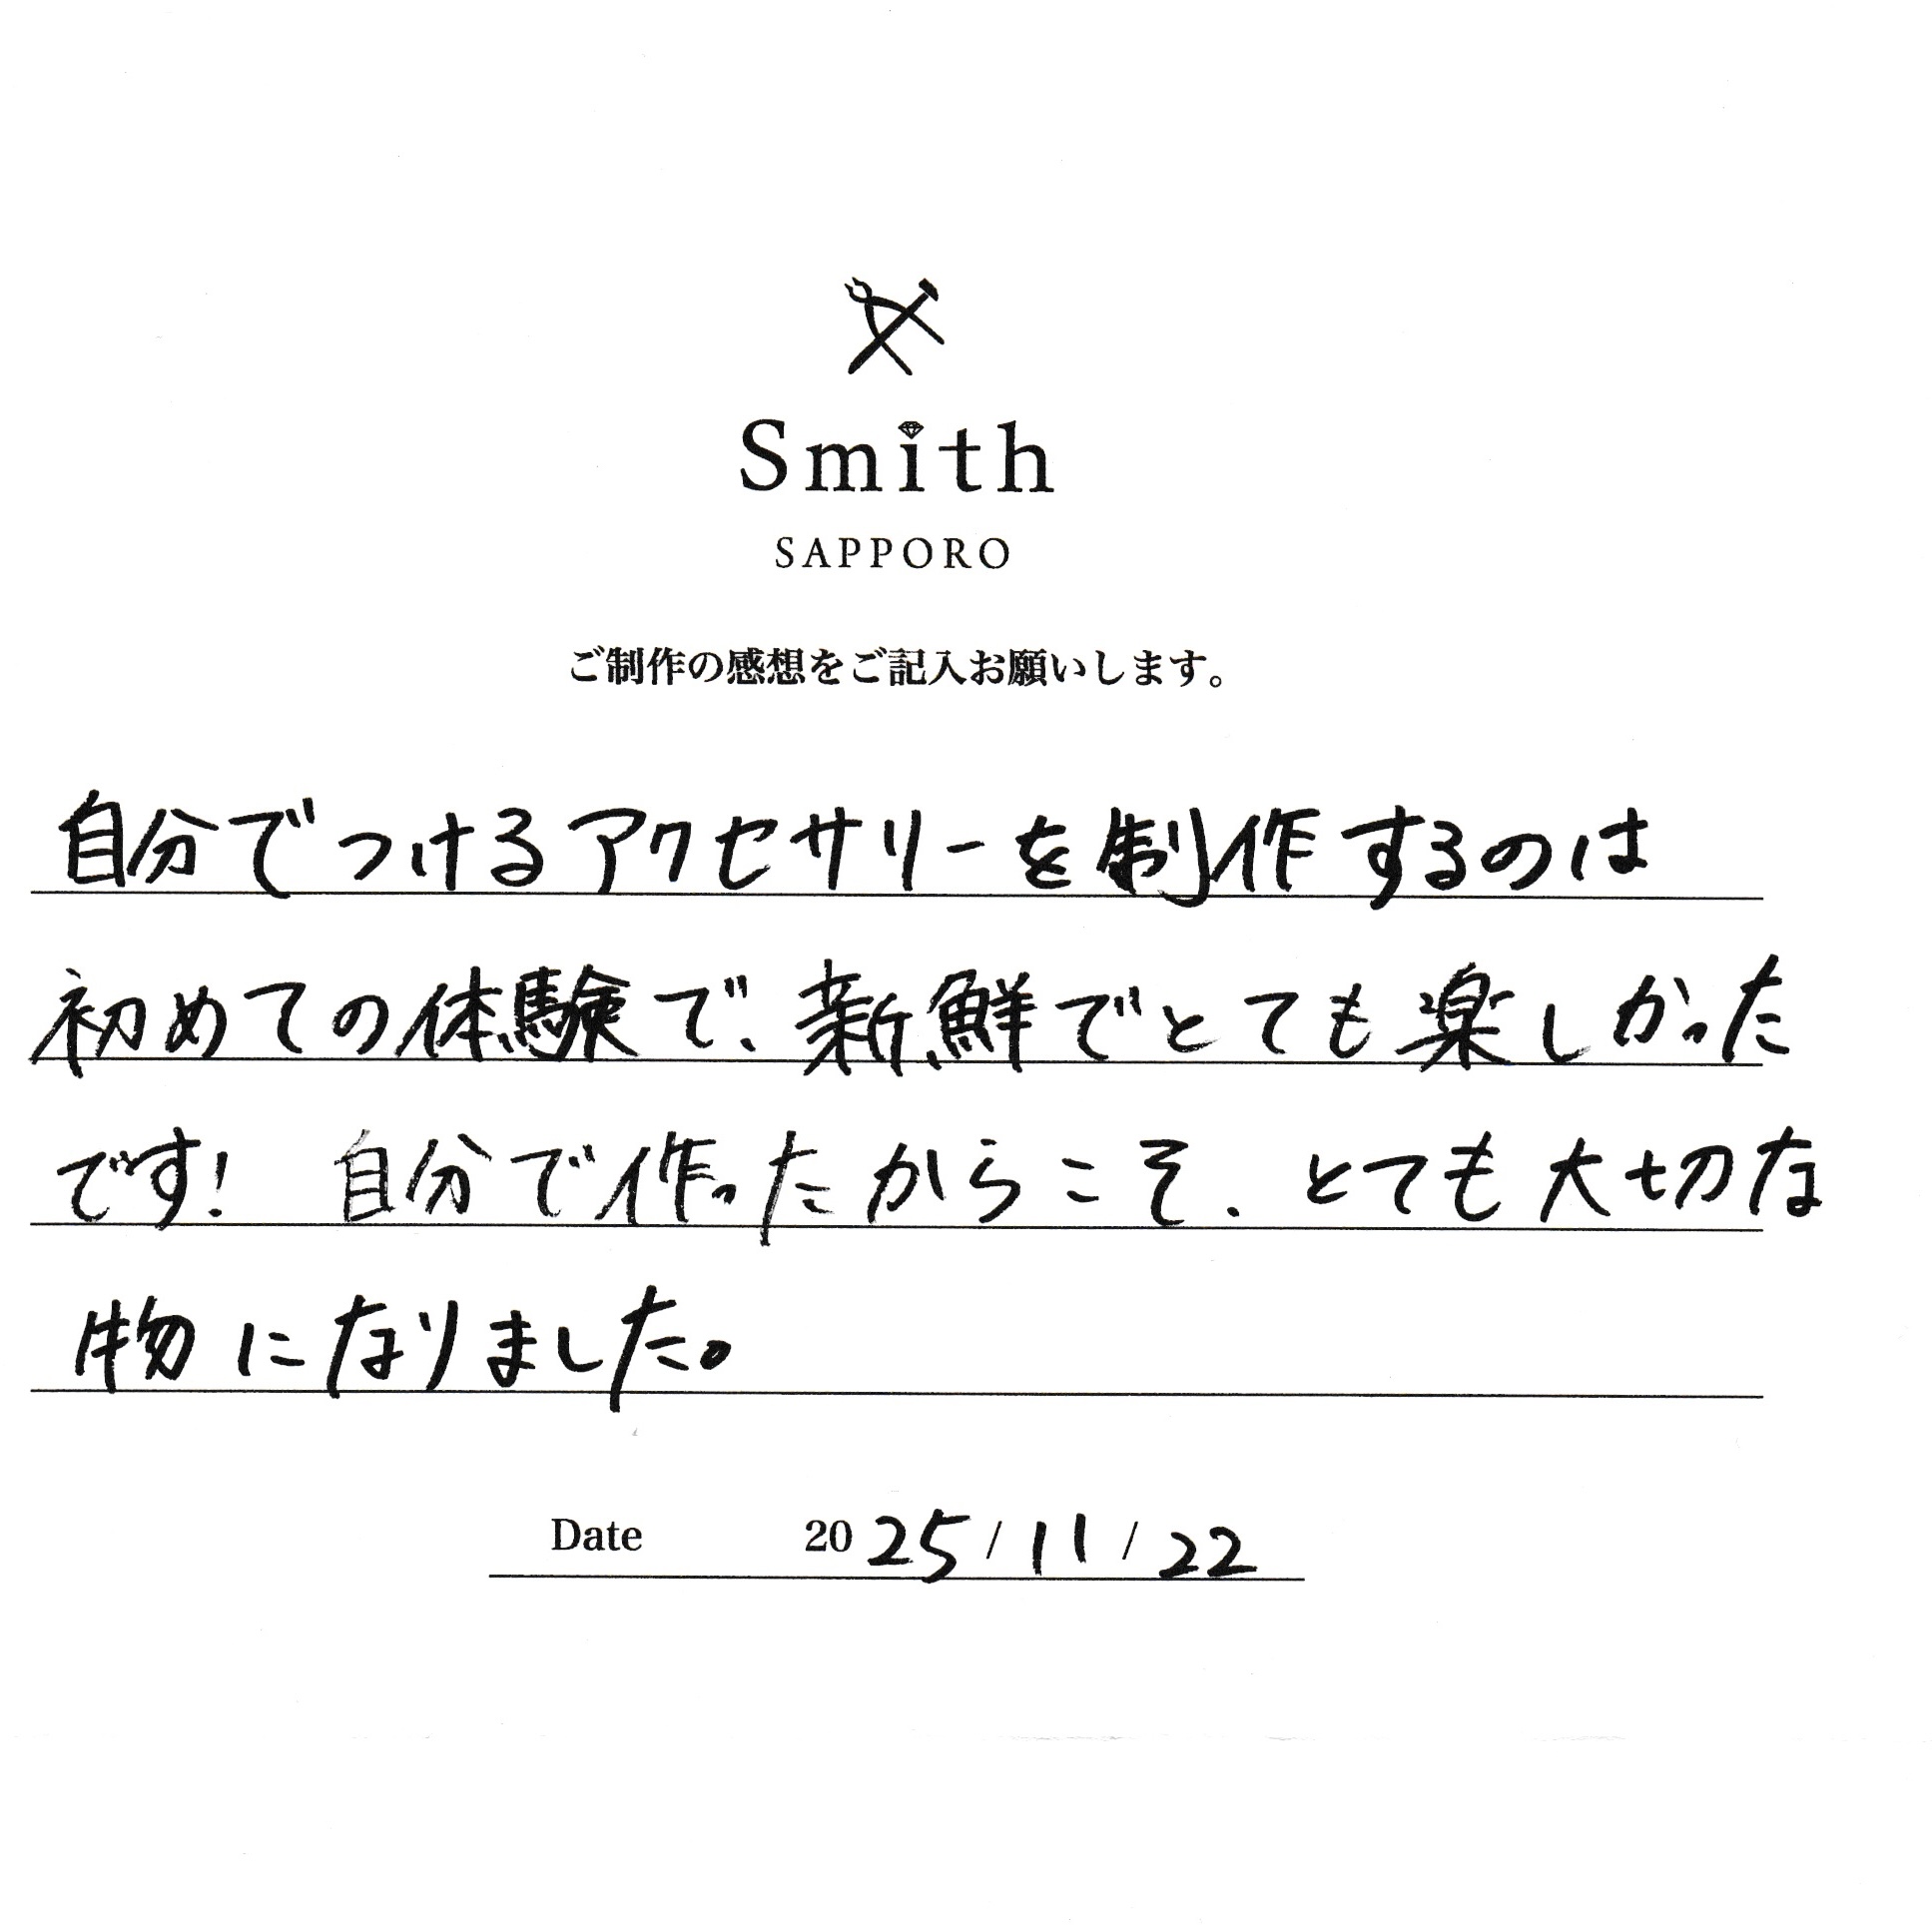 Smith
SAPPORO
ご制作の感想をご記入お願いします。
自分でつけるアクセサリーを制作するのは
初めての体験で、新鮮でとても楽しかった
です! 自分で作ったからこそ、とても大切な
物になりました。
Date 2025/11/22